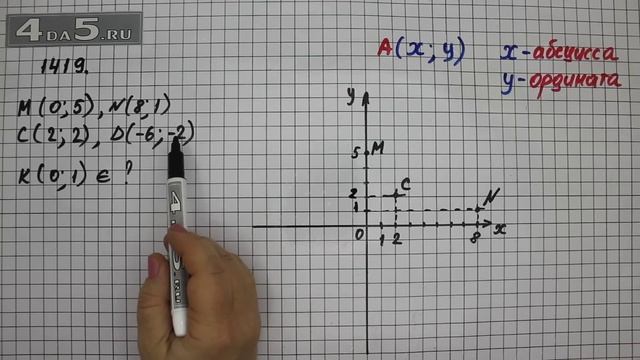 4DA5.RU
1419.
M(0;5), N(8;1)
C(2;2), D(-6;-2)
K(0;1) ∈ ?
A(x; y)
x-абсцисса
y-ордината
y
5 M
2 C
1 N
0 1 2 8 x